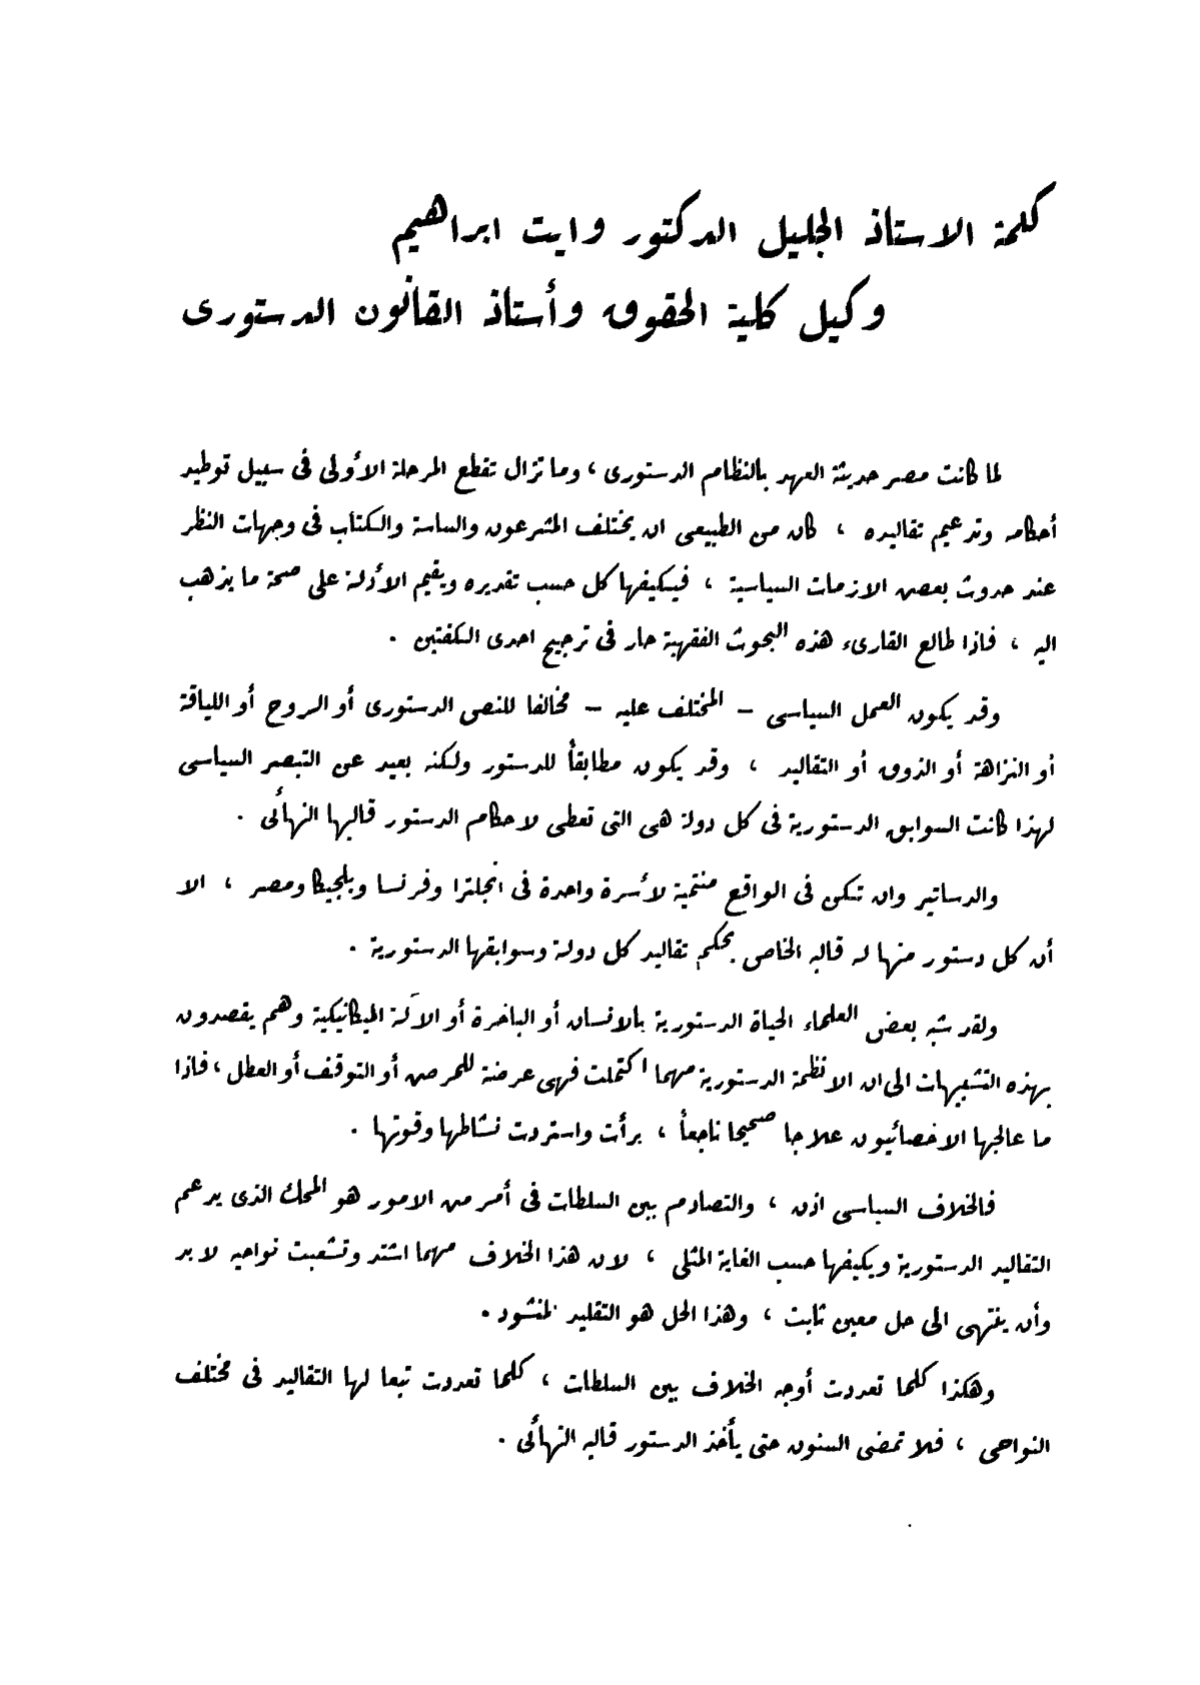 كلمة الاستاذ الجليل الدكتور وايت ابراهيم
وكيل كلية الحقوق وأستاذ القانون الدستورى
لما كانت مصر حديثة العهد بالنظام الدستورى ، وما تزال تقطع المرحلة الأولى فى سبيل توطيد
أحكامه وتدعيم تقاليده ، كان من الطبيعى ان يختلف المشرعون والساسة والكتاب فى وجهات النظر
عند حدوث بعض الازمات السياسية ، فيكيفها كل حسب تقديره ويقيم الأدلة على صحة ما يذهب
اليه ، فاذا طالع القارىء هذه البحوث الفقهية حار فى ترجيح احدى الكفتين .
وقد يكون العمل السياسى – المختلف عليه – مخالفا للنص الدستورى أو الروح أو اللياقة
أو النزاهة أو الذوق أو التقاليد ، وقد يكون مطابقاً للدستور ولكنه بعيد عن التبصر السياسى
لهذا كانت السوابق الدستورية فى كل دولة هى التى تعطى لاحكام الدستور قالبها النهائى .
والدساتير وان تكن فى الواقع منتمية لأسرة واحدة فى انجلترا وفرنسا وبلجيكا ومصر ، الا
أن كل دستور منها له قالبه الخاص بحكم تقاليد كل دولة وسوابقها الدستورية .
ولقد شبه بعض العلماء الحياة الدستورية بالانسان أو الباخرة أو الآلة الميكانيكية وهم يقصدون
بهذه التشبيهات الى ان الانظمة الدستورية مهما اكتملت فهى عرضة للمرض أو التوقف أو العطل ، فاذا
ما عالجها الاخصائيون علاجا صحيحا ناجعاً ، برأت واستردت نشاطها وقوتها .
فالخلاف السياسى اذن ، والتصادم بين السلطات فى أمر من الامور هو المحك الذى يدعم
التقاليد الدستورية ويكيفها حسب الغاية المثلى ، لان هذا الخلاف مهما اشتد وتشعبت نواحيه لابد
وأن ينتهى الى حل معين ثابت ، وهذا الحل هو التقليد المنشود .
وهكذا كلما تعددت أوجه الخلاف بين السلطات ، كلما تعددت تبعا لها التقاليد فى مختلف
النواحى ، فلا تمضى السنون حتى يأخذ الدستور قالبه النهائى .